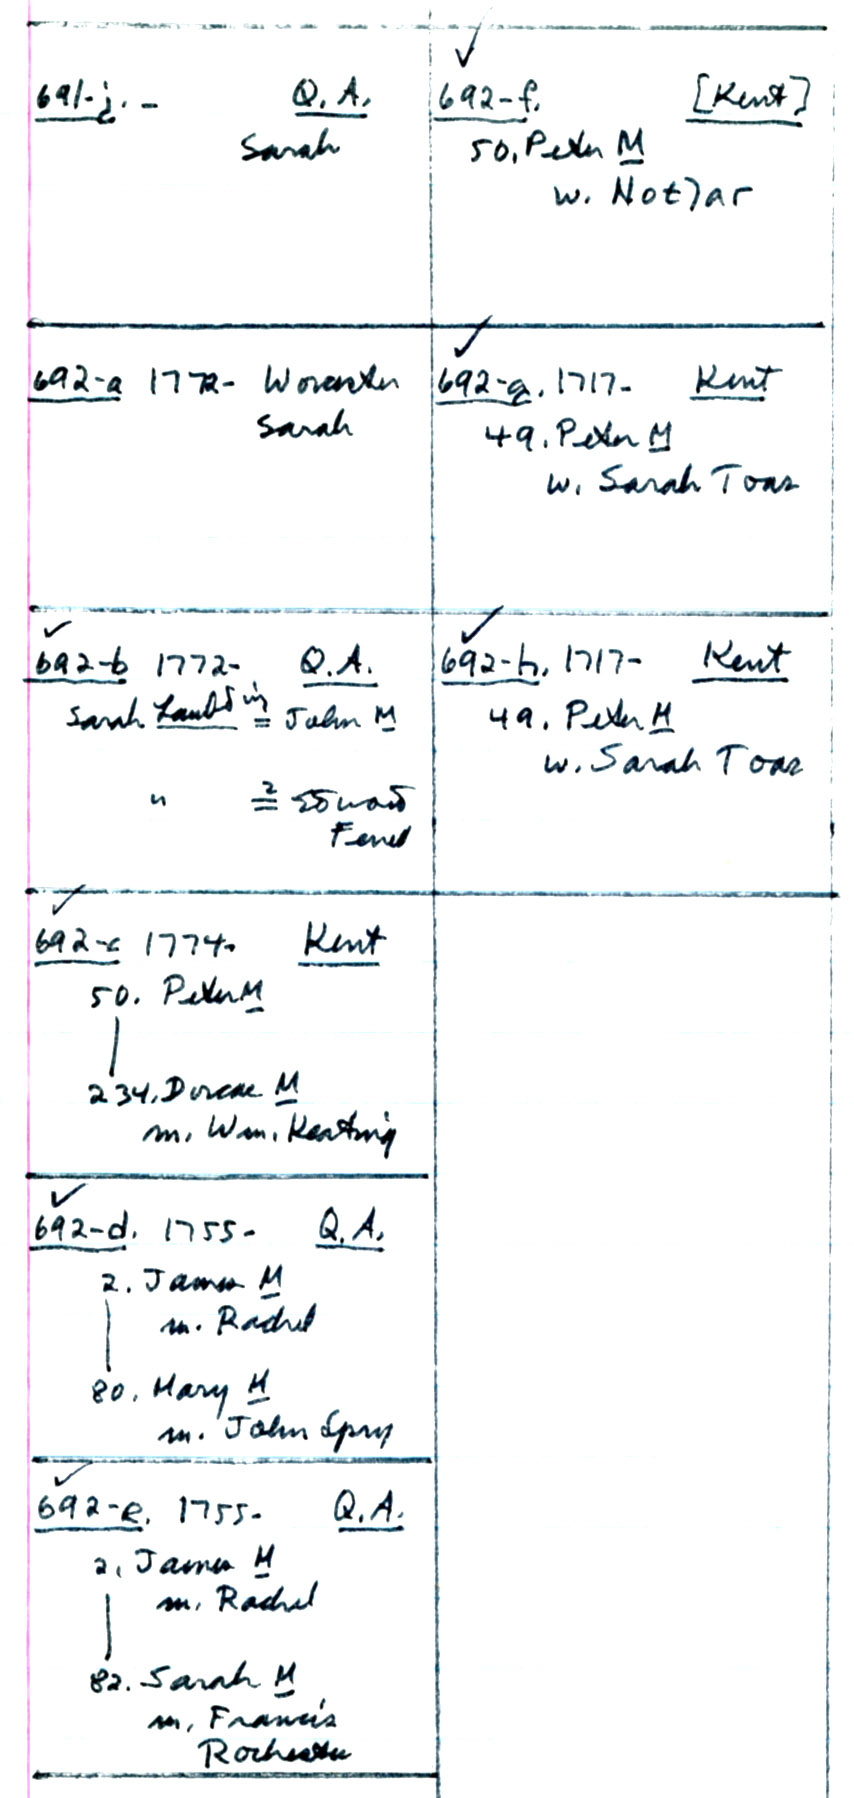 691-j. - Q.A.
Sarah
692-a 1772- Worcester
Sarah
692-b 1772- Q.A.
Sarah = John M
" 2= Edward
692-c 1774. Kent
50. Peter M
234. Dorcas M
m. Wm. Keating
692-d. 1755- Q.A.
2. James M
m. Rachel
80. Mary M
m. John Spry
692-e. 1755- Q.A.
2. James M
m. Rachel
82. Sarah M
m. Francis
Rochester
692-f. [Kent]
50. Peter M
w.
692-g. 1717- Kent
49. Peter M
w. Sarah Toas
692-h. 1717- Kent
49. Peter M
w. Sarah Toas